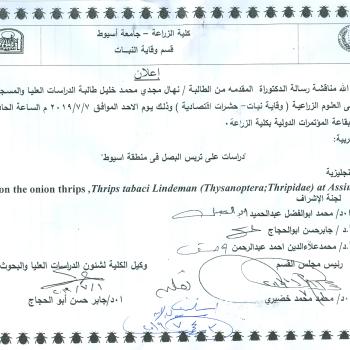 كلية الزراعة – جامعة أسيوط
قسم وقاية النبات
إعلان
الله مناقشة رسالة الدكتوراة المقدمه من الطالبة / نهال مجدي محمد خليل طالبة الدراسات العليا والمسج
فى العلوم الزراعية ( وقاية نبات- حشرات اقتصادية ) وذلك يوم الاحد الموافق ٢٠١٩/٧/٧ م الساعة الحاد
بقاعة المؤتمرات الدولية بكلية الزراعة.
ربية:
"دراسات على تربس البصل فى منطقة اسيوط"
نجليزية
on the onion thrips ,Thrips tabaci Lindeman (Thysanoptera;Thripidae) at Assiu
لجنة الإشراف
ا٠د/ محمد ابوالفضل عبدالحميد
ا٠د/ جابرحسن ابوالحجاج
ا٠د/ محمدعلاءالدين احمد عبدالرحمن
رئيس مجلس القسم
وكيل الكلية لشئون الدراسات العليا والبحوث
ا٠د/ محمد محمد خضيري
ا٠د/جابر حسن أبو الحجاج